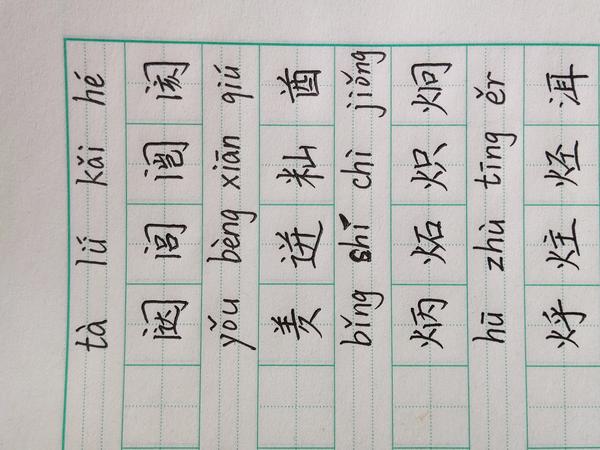 tà lǘ kǎi hé
闼 闾 闿 阂
yǒu bèng xiān qiú
羑 迸 籼 酋
bǐng shí chì jiǒng
炳 炻 炽 炯
hū zhù tīng ěr
烀 炷 烃 洱